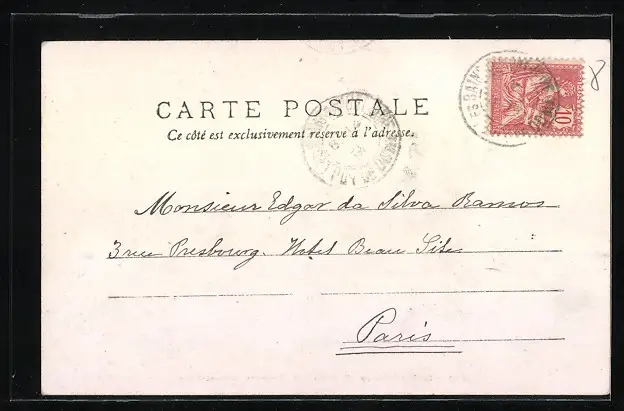 CARTE POSTALE
Ce côté est exclusivement réservé à l'adresse.
PUY DE DOME
10
8
Monsieur Edgar da Silva Ramos
3 rue Presbourg. Hotel Beau Site
Paris